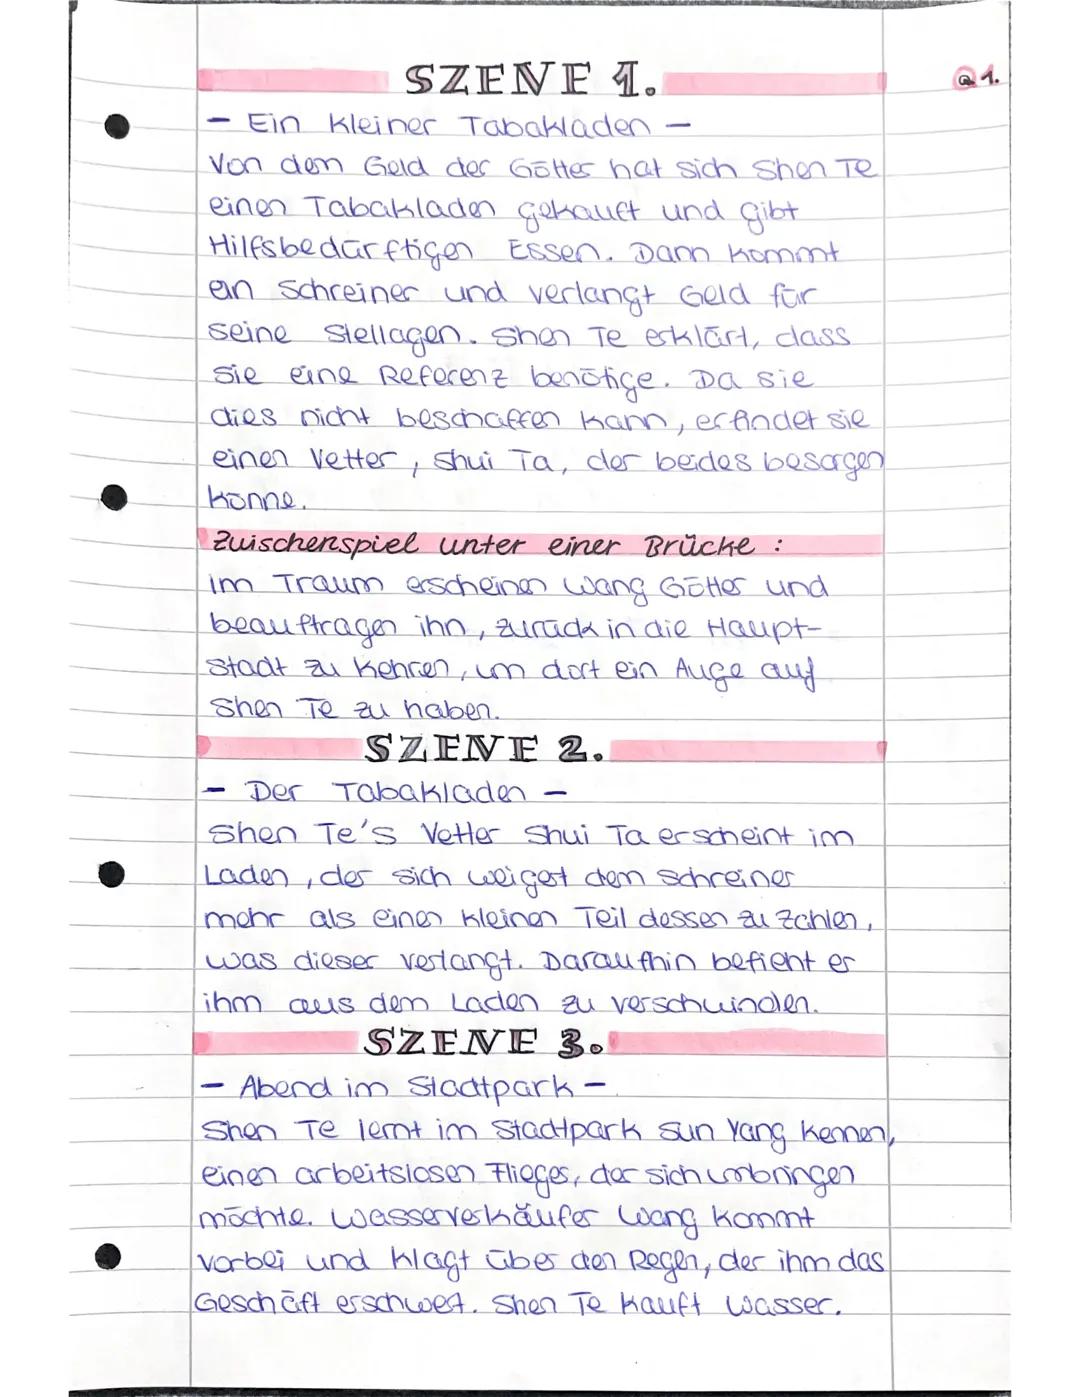 SZENE 1.
Q1.
- Ein kleiner Tabakladen -
Von dem Geld der Götter hat sich Shen Te
einen Tabakladen gekauft und gibt
Hilfsbedürftigen Essen. Dann kommt
ein Schreiner und verlangt Geld für
seine Stellagen. Shen Te erklärt, dass
sie eine Referenz benötige. Da sie
dies nicht beschaffen kann, erfindet sie
einen Vetter, Shui Ta, der beides besorgen
könne.
Zwischenspiel unter einer Brücke :
Im Traum erscheinen Wang Götter und
beauftragen ihn, zurück in die Haupt-
stadt zu kehren, um dort ein Auge auf
Shen Te zu haben.
SZENE 2.
- Der Tabakladen -
Shen Te's Vetter Shui Ta erscheint im
Laden, der sich weigert dem Schreiner
mehr als einen kleinen Teil dessen zu zahlen,
was dieser verlangt. Daraufhin befiehlt er
ihm aus dem Laden zu verschwinden.
SZENE 3.
- Abend im Stadtpark -
Shen Te lernt im Stadtpark Sun Yang kennen,
einen arbeitslosen Flieger, der sich umbringen
möchte. Wasserverkäufer Wang kommt
vorbei und klagt über den Regen, der ihm das
Geschäft erschwert. Shen Te kauft Wasser.